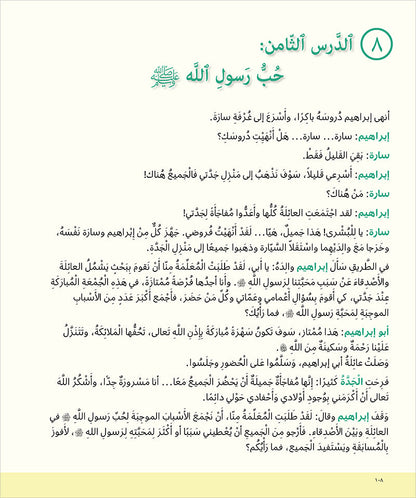 ٨
اَلدَّرس اَلثّامن:
حُبُّ رَسولِ اَللَّه ﷺ
أنهى إبراهيم دُروسَهُ باكِرًا، وأَسْرَعَ إلى غُرْفَةِ سارَةَ.
إبراهيم: سارة... سارة... هَلْ أَنْهَيْتِ دُروسَكِ؟
سارة: بَقِيَ القَليلُ فَقَطْ.
إبراهيم: أَسْرِعي قَليلاً، سَوْفَ نَذْهَبُ إلى مَنْزِلِ جَدَّتي فَالْجَميعُ هُناك!
سارة: مَنْ هُناكَ؟
إبراهيم: لقد اجْتَمَعَتِ العائِلَةُ كُلُّها وأَعَدُّوا مُفاجَأَةً لِجَدَّتي!
سارة: يا لَلْبُشْرى! هَذا جَميلٌ، هَيّا... لَقَدْ أَنْهَيْتُ فُروضي. جَهَّزَ كُلٌّ مِنْ إبْراهيم وسارَة نَفْسَهُ،
وخَرَجا مَعَ والِدَيْهِما واسْتَقَلّا السَّيّارة وذهبوا جَميعًا إلى مَنْزِلِ الْجَدَّةِ.
في الطَّريقِ سَأَلَ إبراهيم والِدَهُ: يا أبي، لَقَدْ طَلَبَتْ الْمُعَلِّمَةُ مِنّا أنْ نَقومَ بِبَحْثٍ يَشْمُلُ العائِلَةَ
والأَصْدِقاءَ عَنْ سَبَبِ مَحَبَّتِنا لِرَسولِ اللَّهِ ﷺ. وأنا أجِدُها فُرْصَةً مُمْتازَةً، في هَذِهِ الْجُمْعَةِ الْمُبارَكَةِ
عِنْدَ جَدَّتي، كي أقومَ بِسُؤالِ أعْمامي وعَمّاتي وكُلِّ مَنْ حَضَرَ، فأَجْمَع أكْبَرَ عَدَدٍ مِنَ الأَسْبابِ
الموجِبَةِ لِمَحَبَّةِ رَسولِ اللَّهِ ﷺ، فما رَأيُكَ؟
أبو إبراهيم: هَذا مُمْتاز، سَوفَ تكونُ سَهْرَةً مُبارَكَةً بِإِذْنِ اللَّهِ تَعالى، تَحُفُّها الْمَلائِكَةُ، وتَتَنَزَّلُ
عَلَيْنا رَحْمَةٌ وسَكينَةٌ مِنَ اللَّهِ.
وَصَلَتْ عائِلَةُ أبي إبراهيم، وَسَلَّمُوا عَلى الْحُضورِ وجَلَسُوا.
فَرِحَتِ الْجَدَّةُ كَثيرًا: إنَّها مُفاجَأَةٌ جَميلَةٌ أنْ يَحْضُرَ الْجَميعُ مَعًا... أنا مَسْرورَةٌ جِدًّا، وأَشْكُرُ اللَّهَ
تَعالى أنْ أكْرَمَني بِوُجودِ أَوْلادي وَأَحْفادي حَوْلي دائِمًا.
وَقَفَ إبراهيم وقالَ: لَقَدْ طَلَبَتِ الْمُعَلِّمَةُ مِنّا، أنْ نَجْمَعَ الأَسْبابَ الموجِبَةَ لِحُبِّ رَسولِ اللَّهِ ﷺ في
العائِلَةِ وبَيْنَ الأَصْدِقاءِ. فَأَرْجو مِنَ الْجَميعِ أنْ يُعْطيني سَبَبًا أو أَكْثَرَ لِمَحَبَّتِهِ لِرَسولِ اللهِ ﷺ، لأفوزَ
بِالْمُسابَقَةِ ويَسْتَفيدَ الْجَميع، فما رَأْيُكُم؟
١٠٨